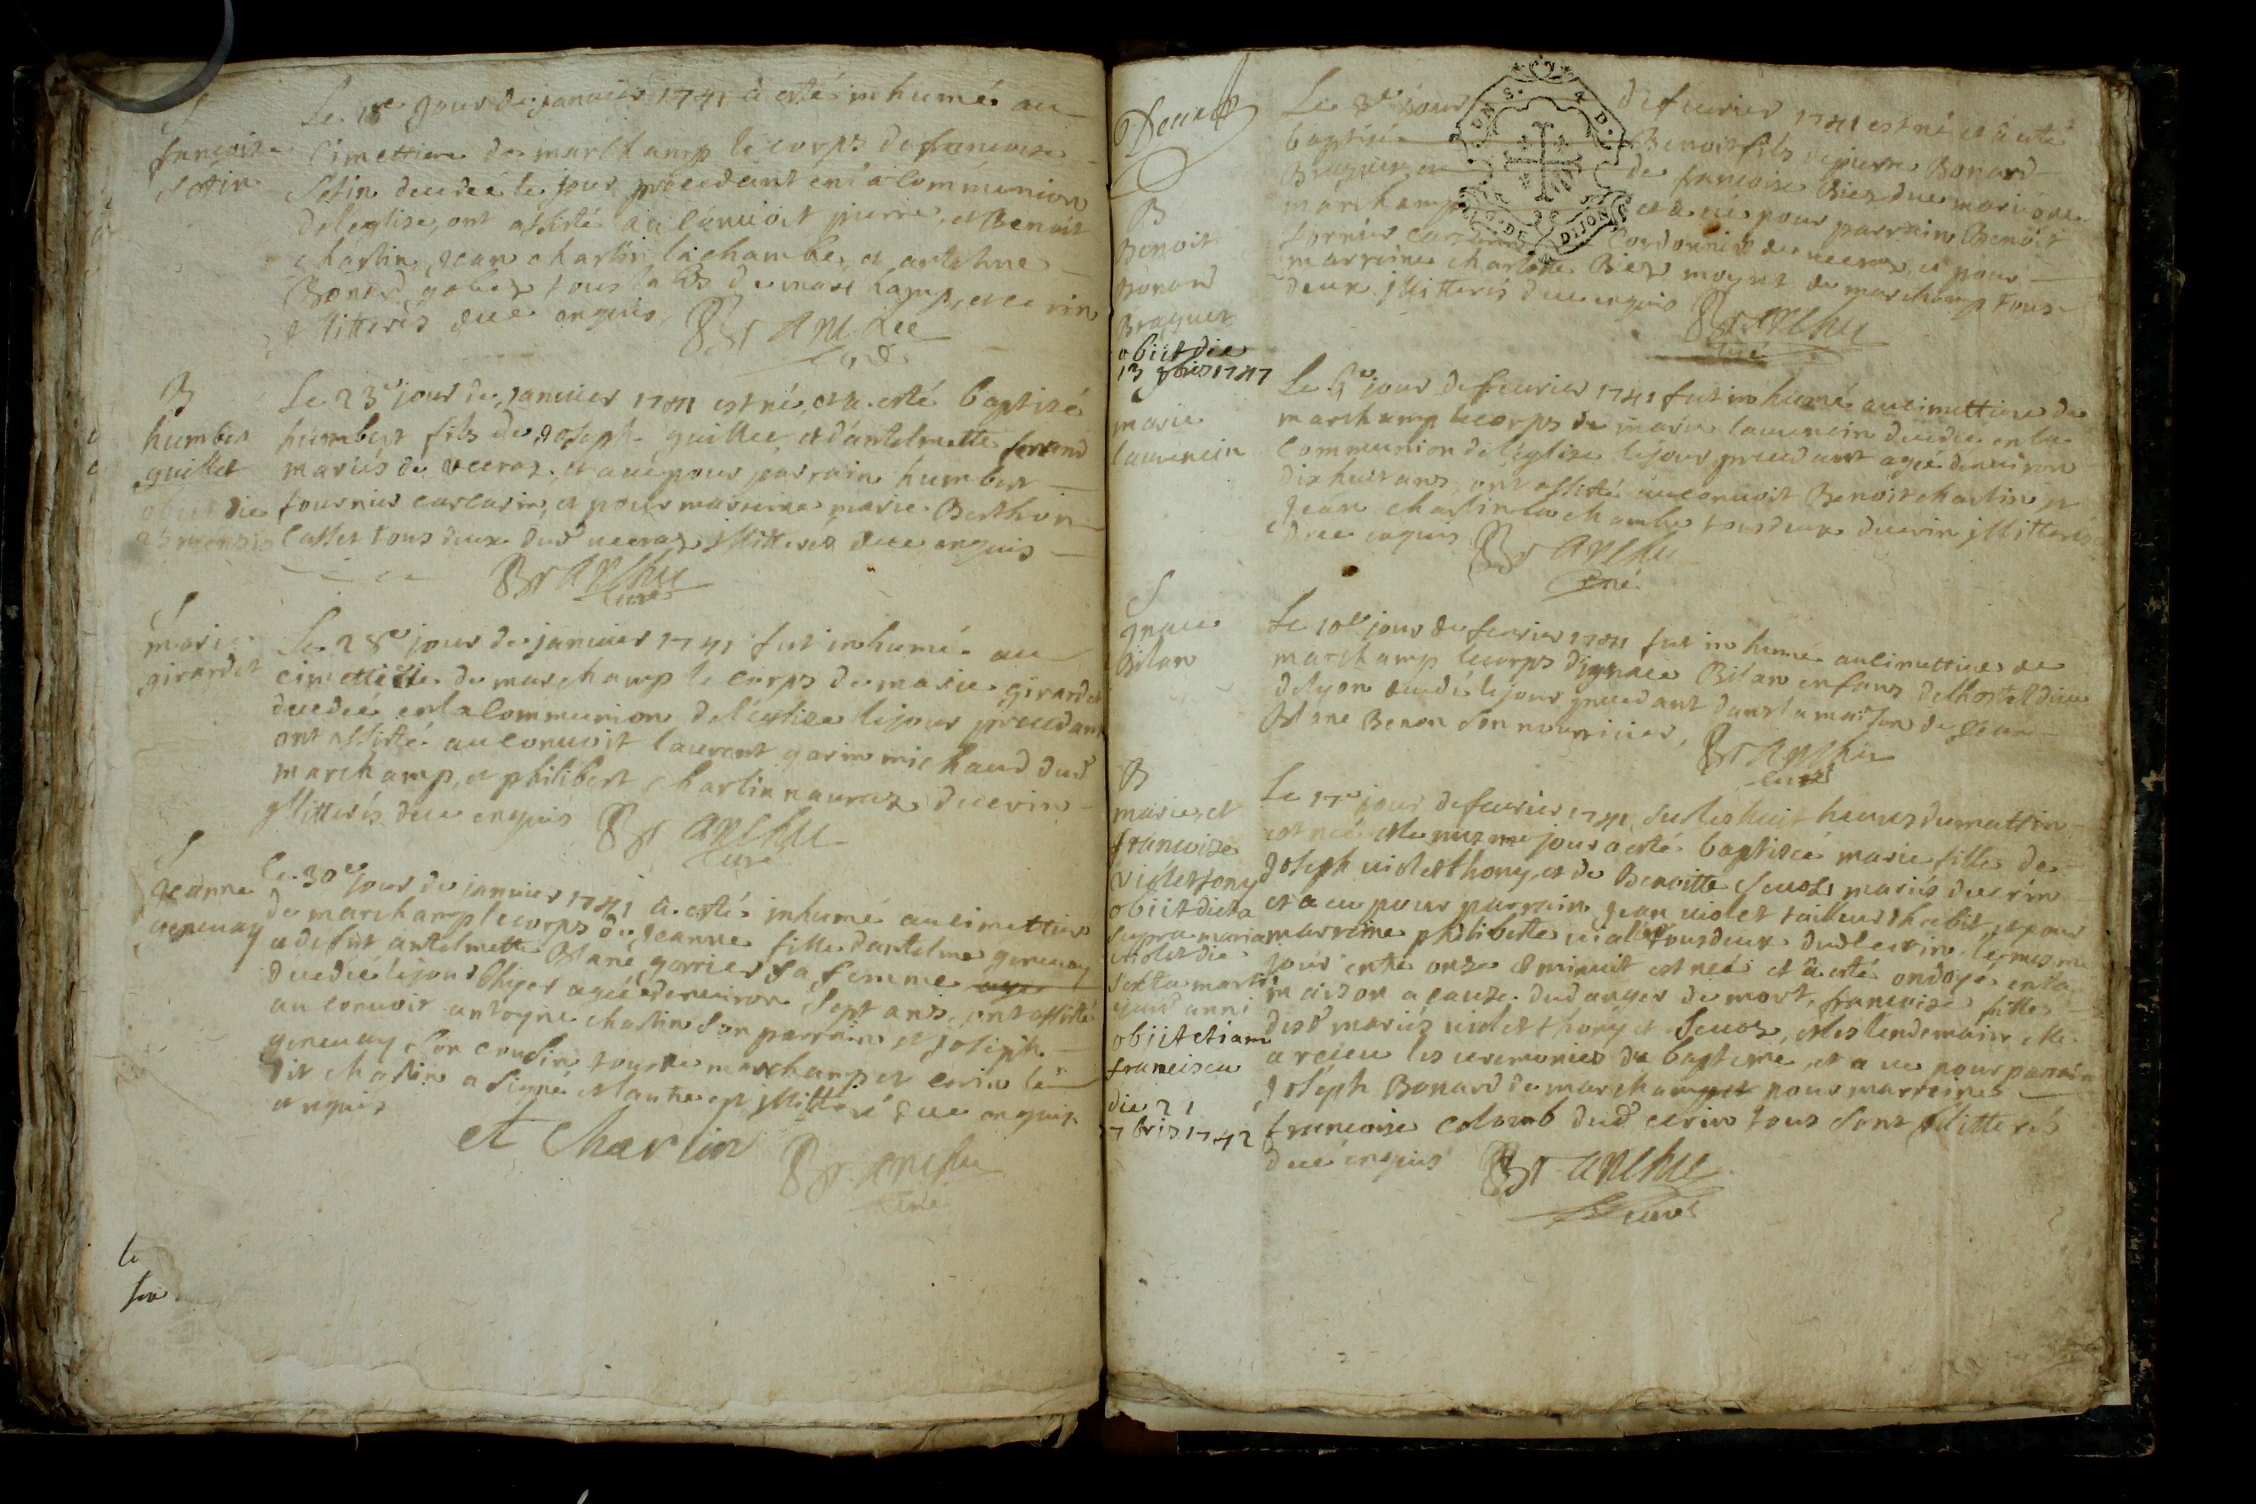 S
francoise
Setin
Le 18e jour de janvier 1741 a esté inhumé au
cimettiere de marchamp le corps de francoise
Setin decedeé le jour precedant en la Communion
de l'eglise, ont assisté au convoit pierre, et Benoit
charlin, jean charlin lachambe, et antelme
Bonard tous la de marchamp, et cerin
illitteres duee enquis
Branche
curé
B
humbert
guillet
obiit die
25 mensis
Le 23e jour de janvier 1741 est né, et a esté baptisé
humbert fils de joseph guillet et d'antelmette ferrand
mariés de veeraz, et a eu pour parrain humbert
fournier carcarin, et pour marreine marie Berthon
Casset tous deux dud veeraz illitteres duee enquis
Branche
curé
S
marie
girardet
Le 28e jour de janvier 1741 fut inhumé au
cimettiere de marchamp le corps de marie girardet
decedee en la Communion de l'eglise le jour precedant
ont assisté au convoit laurent garin michaud dud
marchamp, et philibert charlin nauraz de cerin
illitterés duee enquis
Branche
curé
S
jeanne
genevay
Le 30e jour de janvier 1741 a esté inhumé au cimettiere
de marchamp le corps de jeanne fille d'antelme genevay
et defut antelmette Blanc garrier sa femme
decedeé le jour d'hyer ageé d'environ sept ans, ont assisté
au convoit antoyne charlin son parrain et joseph
genevay son cousin tous de marchamp et cerin le
dit charlin a signé et l'autre est illitteré duee enquis
enquis
et Charlin
Branche
curé
le
fev
fevrier
B
Benoit
Bonard
Braquet
obiit die
13 1747
Le 8e jour de fevrier 1741 est né et a esté
baptisé Benoit fils de pierre Bonard
Braquet, et de francoise Biez due mariés de
marchamp et a eu pour parrain Benoit
fornier cordonnier de veeraz, et pour
marreine charlotte Biez moynt de marchamp tous
deux illitterés duee enquis
Branche
curé
marie
laurencin
Le 9e jour de fevrier 1741 fut inhumé au cimettiere de
marchamp le corps de marie laurencin decedee en la
Communion de l'eglise le jour precedant ageé d'environ
dix huit ans, ont assisté au convoit Benoit charlin, et
jean charlin la chambe tous deux de cerin illitterés
duee enquis
Branche
curé
S
ignace
Bilan
Le 10e jour de fevrier 1741 fut inhumé au cimettiere de
marchamp le corps d'ignace Bilan enfans de l'hostel dieu
de lyon decedé le jour precedant dans la maison de jean
Blanc Benon son nourricier,
Branche
curé
B
marie, et
francoise
violet jony
obiit dicta
supra maria
violet die
sexta martii
ejusd anni
obiit etiam
francisca
die 21
7bris 1742
Le 17e jour de fevrier 1741 sur les huit heures du mattin
est neé et le mesme jour a esté baptiseé marie fille de
joseph violet thony, et de Benoitte sevoz mariés de cerin
et a eu pour parrain jean violet tailleur d'habit, et pour
marreine philiberte violet tous deux dud cerin. le mesme
jour entre onze et minuit est neé et a esté ondoyé en la
maison a cause du danger de mort francoise fille
desd mariés violet thony et sevoz, et le lendemain elle
a receu les ceremonies du bapteme, et a eu pour parrain
joseph Bonard de marchamp et pour marreine
francoise colomb dud cerin tous sont illitterés
duee enquis
Branche
curé